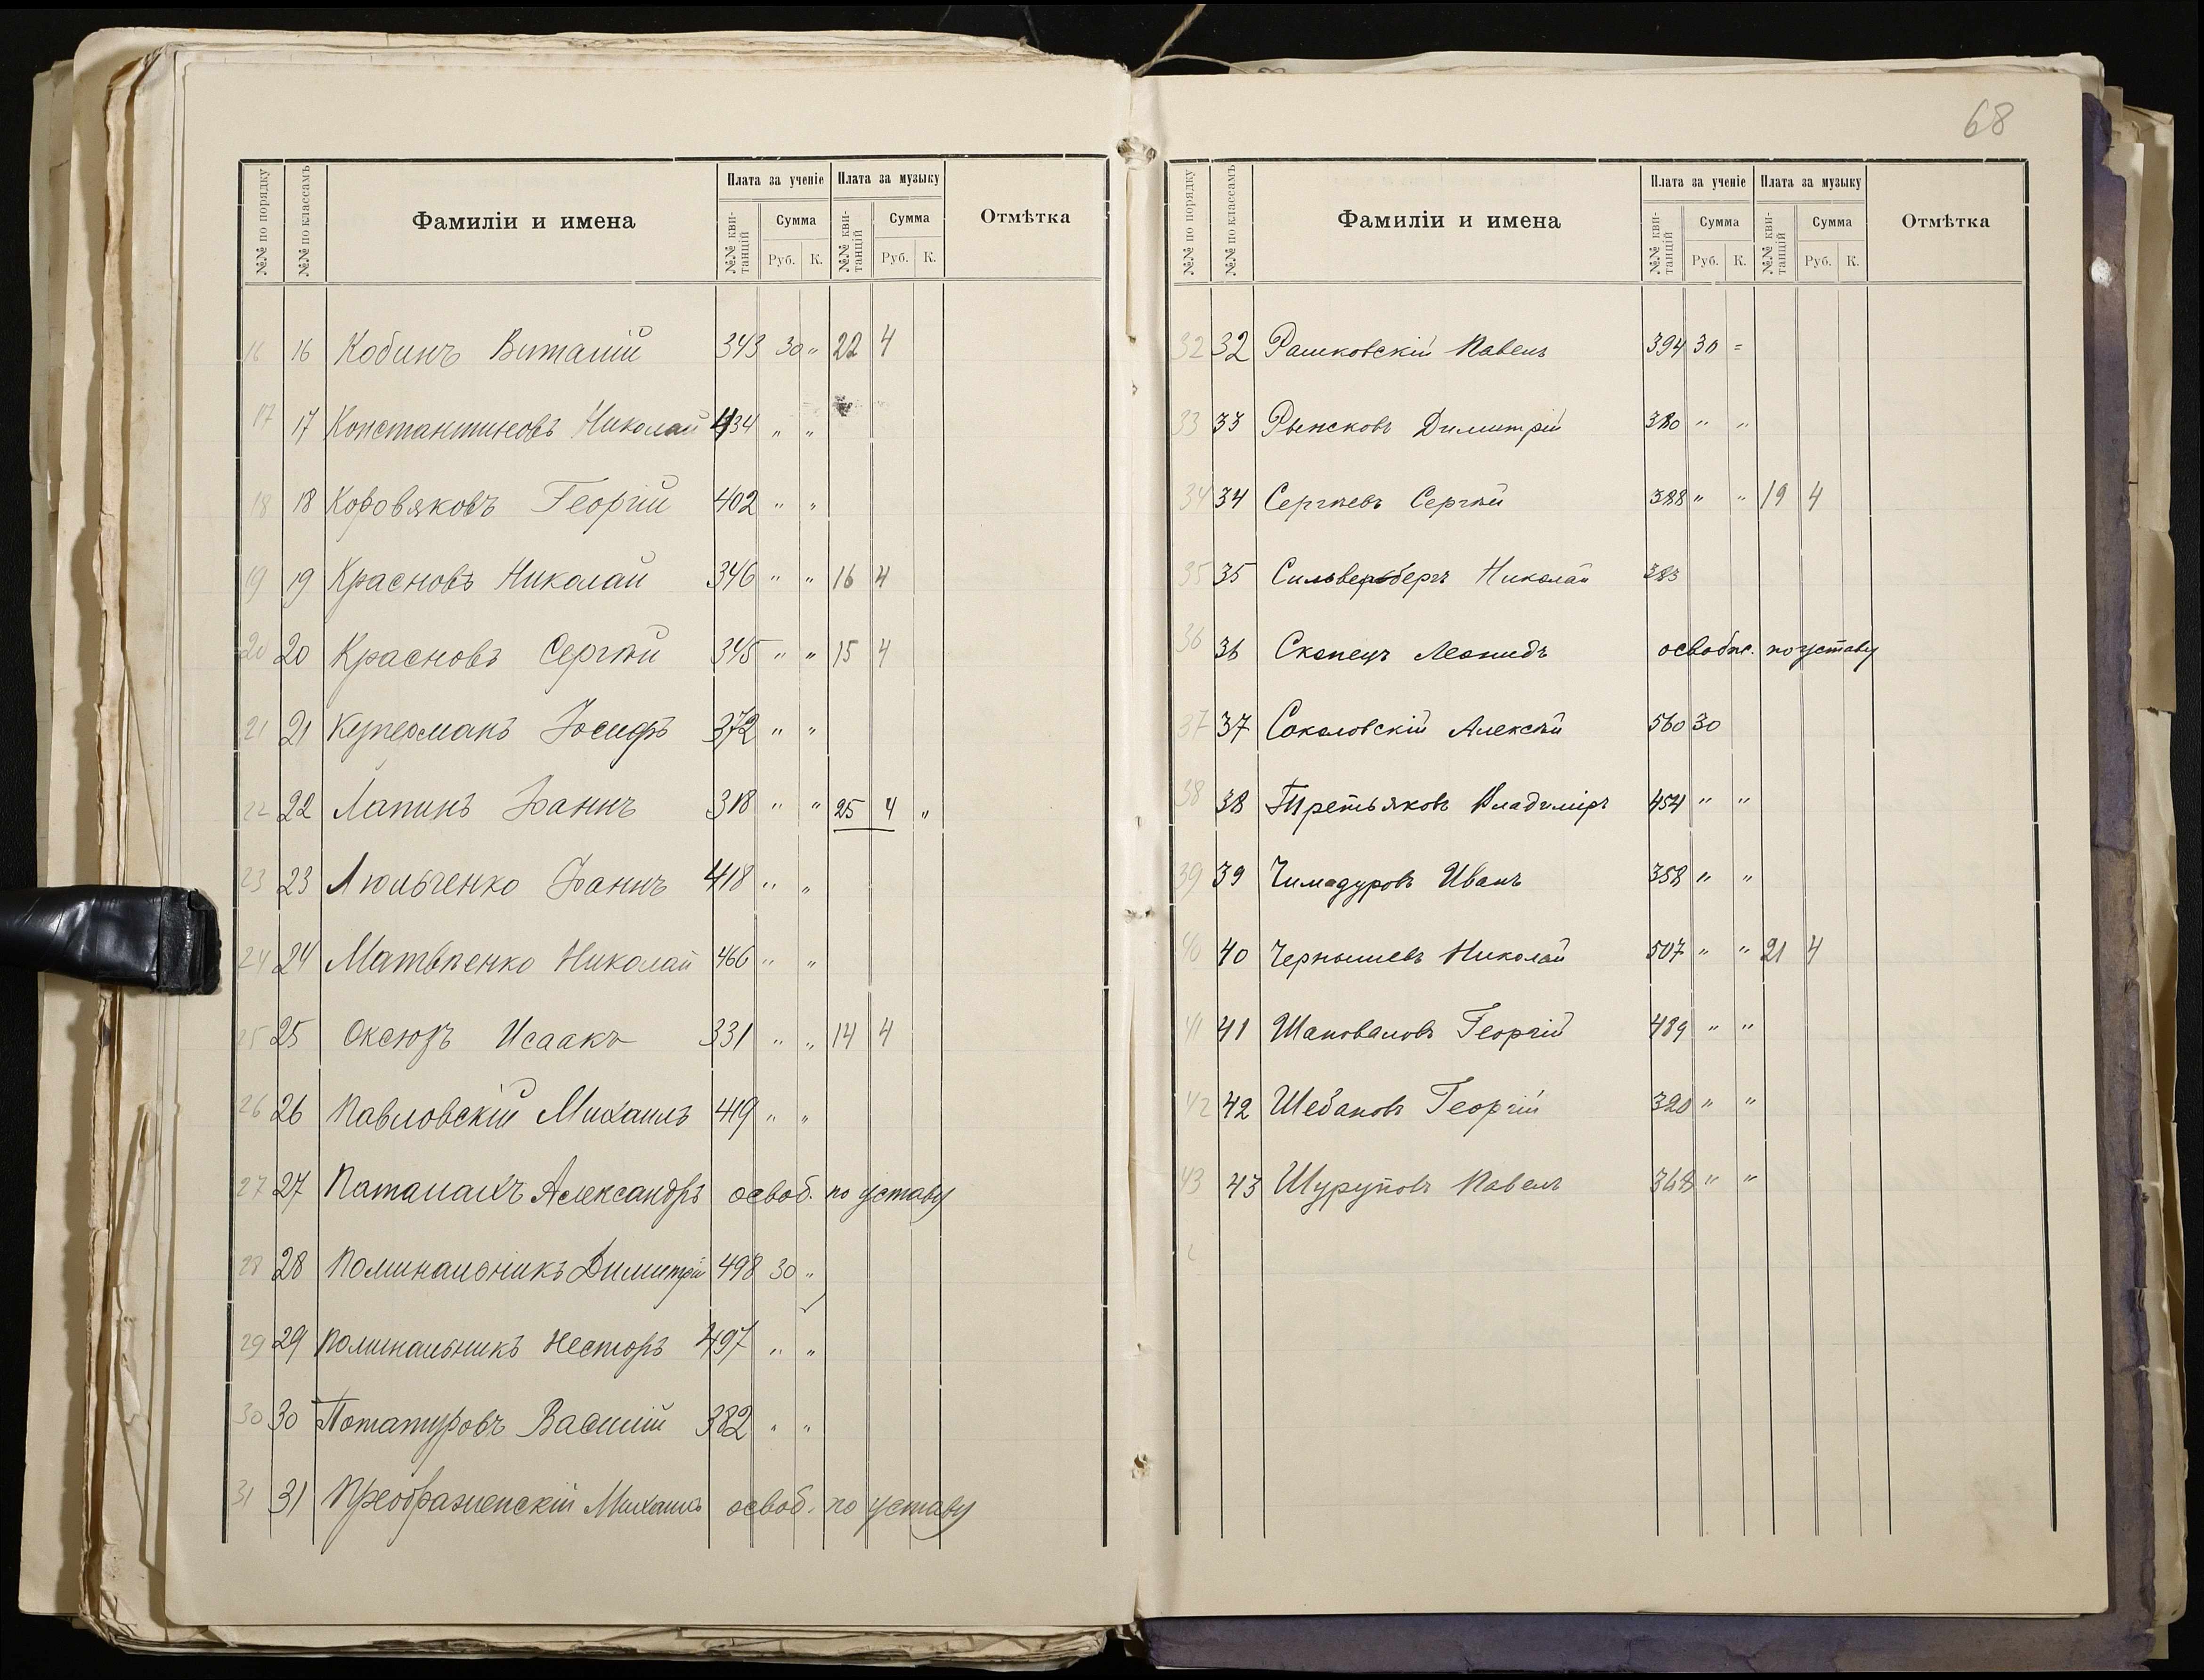 №№ по порядку №№ по классамъ Фамиліи и имена Плата за ученіе Плата за музыку Отмѣтка
№№ квитанцій Сумма №№ квитанцій Сумма
Руб. К. Руб. К.
16 16 Кобинъ Виталій 343 30 " 22 4
17 17 Константиновъ Николай 434 " "
18 18 Коровяковъ Георгій 402 " "
19 19 Красновъ Николай 346 " " 16 4
20 20 Красновъ Сергѣй 345 " " 15 4
21 21 Куперманъ Іосифъ 372 " "
22 22 Лапинъ Іоаннъ 318 " " 25 4 "
23 23 Люльченко Іоаннъ 418 " "
24 24 Матвѣенко Николай 466 " "
25 25 Оксюзъ Исаакъ 331 " " 14 4
26 26 Павловскій Михаилъ 419 " "
27 27 Паталахъ Александръ освоб. по уставу
28 28 Поминальникъ Димитрій 498 30 "
29 29 Поминальникъ Несторъ 497 " "
30 30 Потатуровъ Василій 382 " "
31 31 Преображенскій Михаилъ освоб. по уставу
68
№№ по порядку №№ по классамъ Фамиліи и имена Плата за ученіе Плата за музыку Отмѣтка
№№ квитанцій Сумма №№ квитанцій Сумма
Руб. К. Руб. К.
32 32 Рашковскій Павелъ 394 30 =
33 33 Рынсковъ Димитрій 380 " "
34 34 Сергѣевъ Сергѣй 388 " " 19 4
35 35 Сильверсбергъ Николай 383
36 36 Скопецъ Леонидъ освобж. по уставу
37 37 Соколовскій Алексѣй 560 30
38 38 Третьяковъ Владиміръ 454 " "
39 39 Чимадуровъ Иванъ 358 " "
40 40 Чернышевъ Николай 507 " " 21 4
41 41 Шаповаловъ Георгій 489 " "
42 42 Шебановъ Георгій 320 " "
43 43 Шуруповъ Павелъ 368 " "